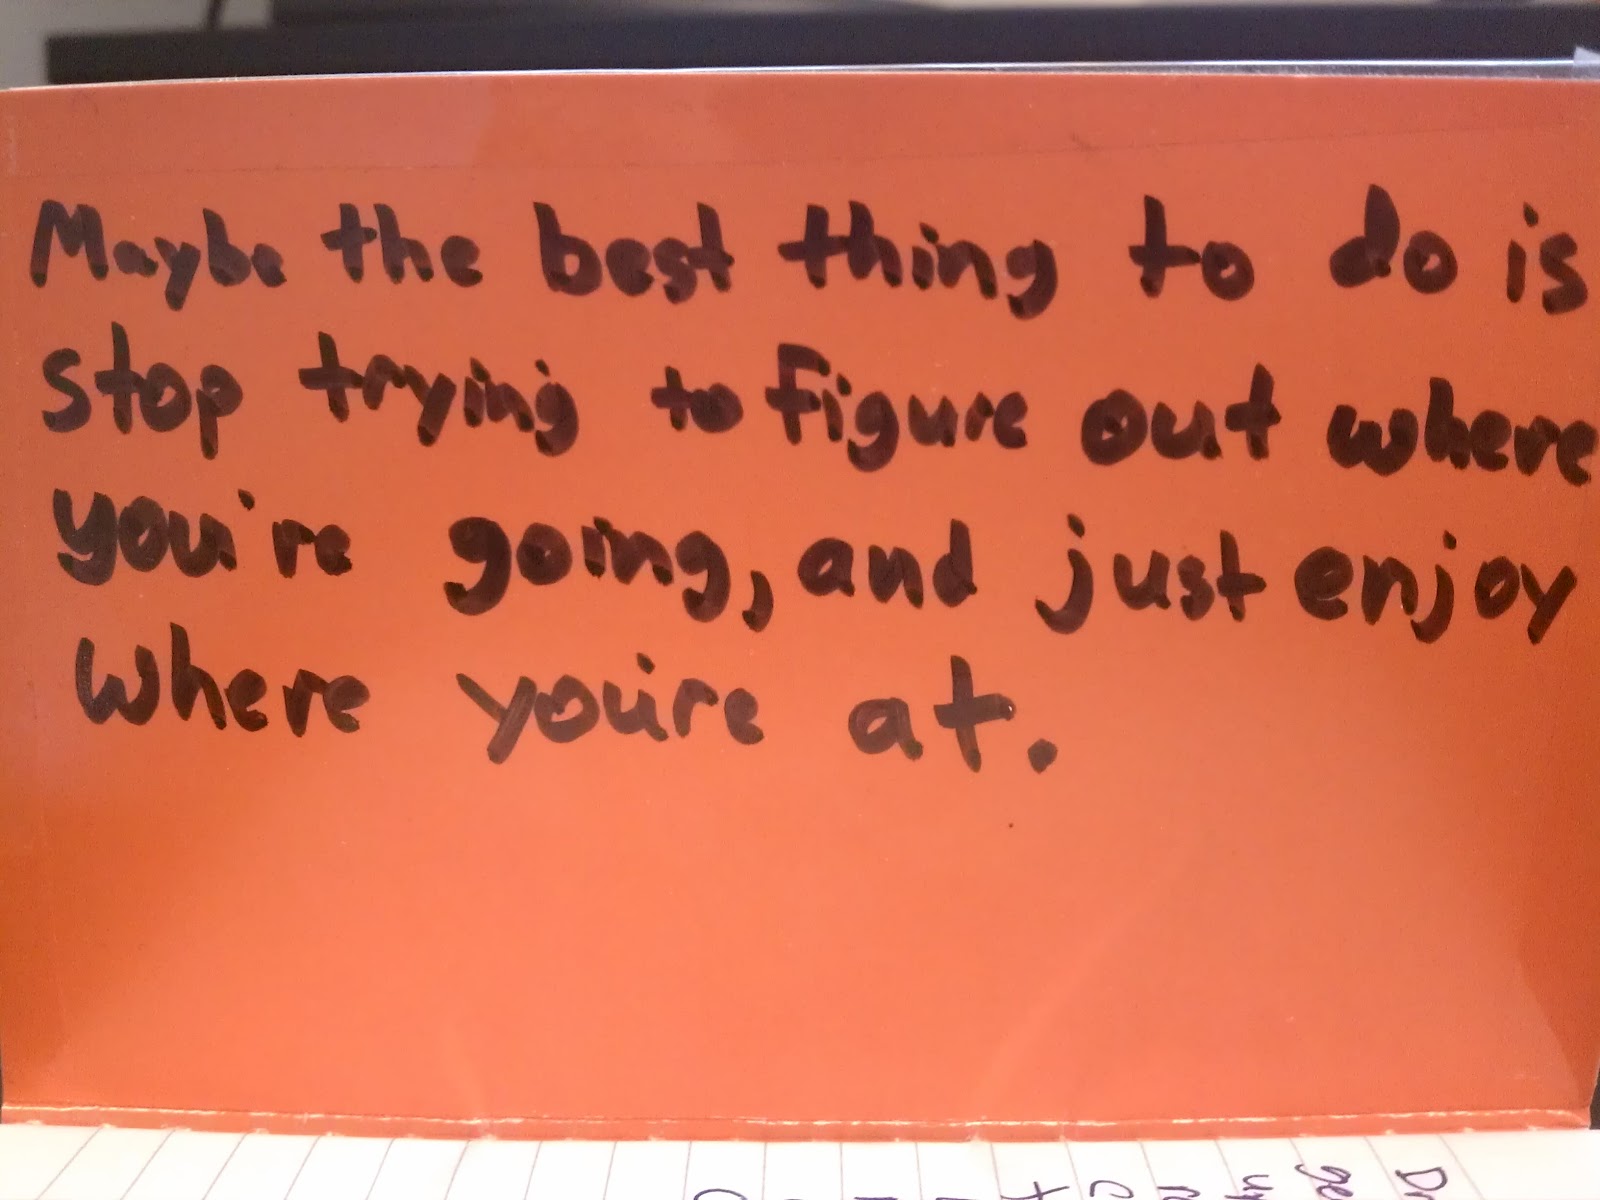 Maybe the best thing to do is
stop trying to figure out where
you're going, and just enjoy
where you're at.